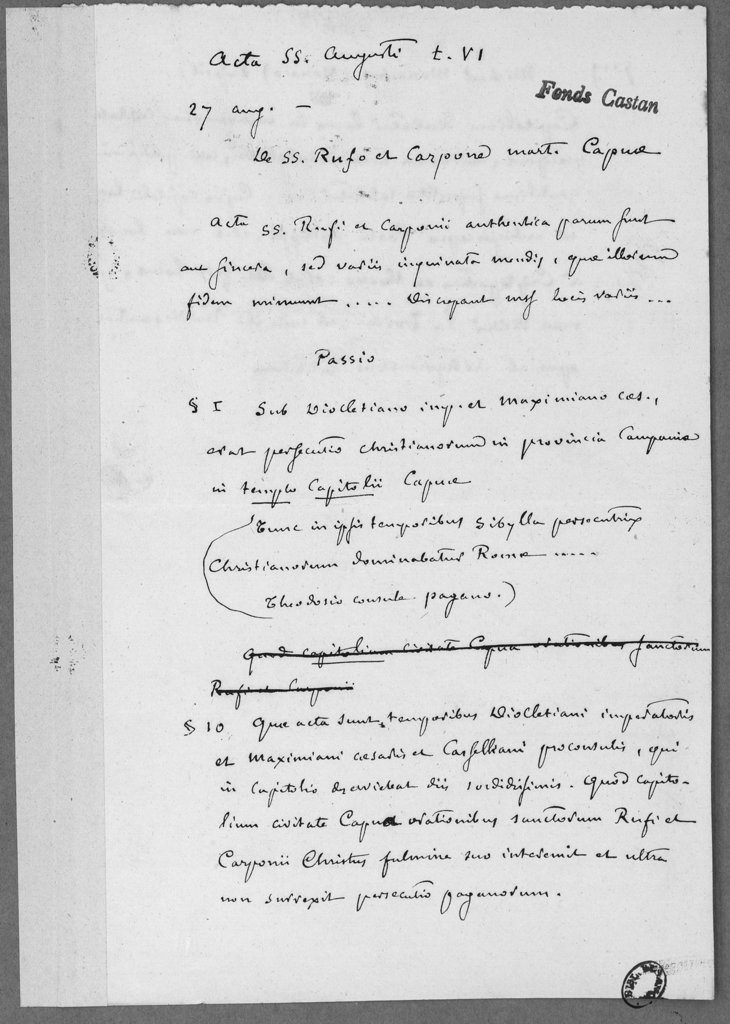 Acta SS. Augusti t. VI
Fonds Castan
27 aug. —
De SS. Rufo et Carpone mart. Capuæ
Acta SS. Rufi et Carponii authentica parum sunt
aut sincera, sed variis inquinata mendis, quæ illorum
fidem minuunt ..... Discrepant mss locis variis ...
Passio
§ I Sub Diocletiano imp. et Maximiano cæs.,
erat persecutio christianorum in provincia Campaniæ
in templo Capitolii Capuæ
(Tunc in ipsis temporibus Sibylla persecutrix
Christianorum dominabatur Romæ .....
Theodosio consule pagano.)
Quod capitolium civitate Capua orationibus sanctorum
Rufi et Carponii
§ 10 Quæ acta sunt temporibus Diocletiani imperatoris
et Maximiani cæsaris et Caselliani proconsulis, qui
in capitolio deserviebat diis sordidissimis. Quod capito-
lium civitate Capua orationibus sanctorum Rufi et
Carponii Christus fulmine suo interemit et ultra
non surrexit persecutio paganorum.